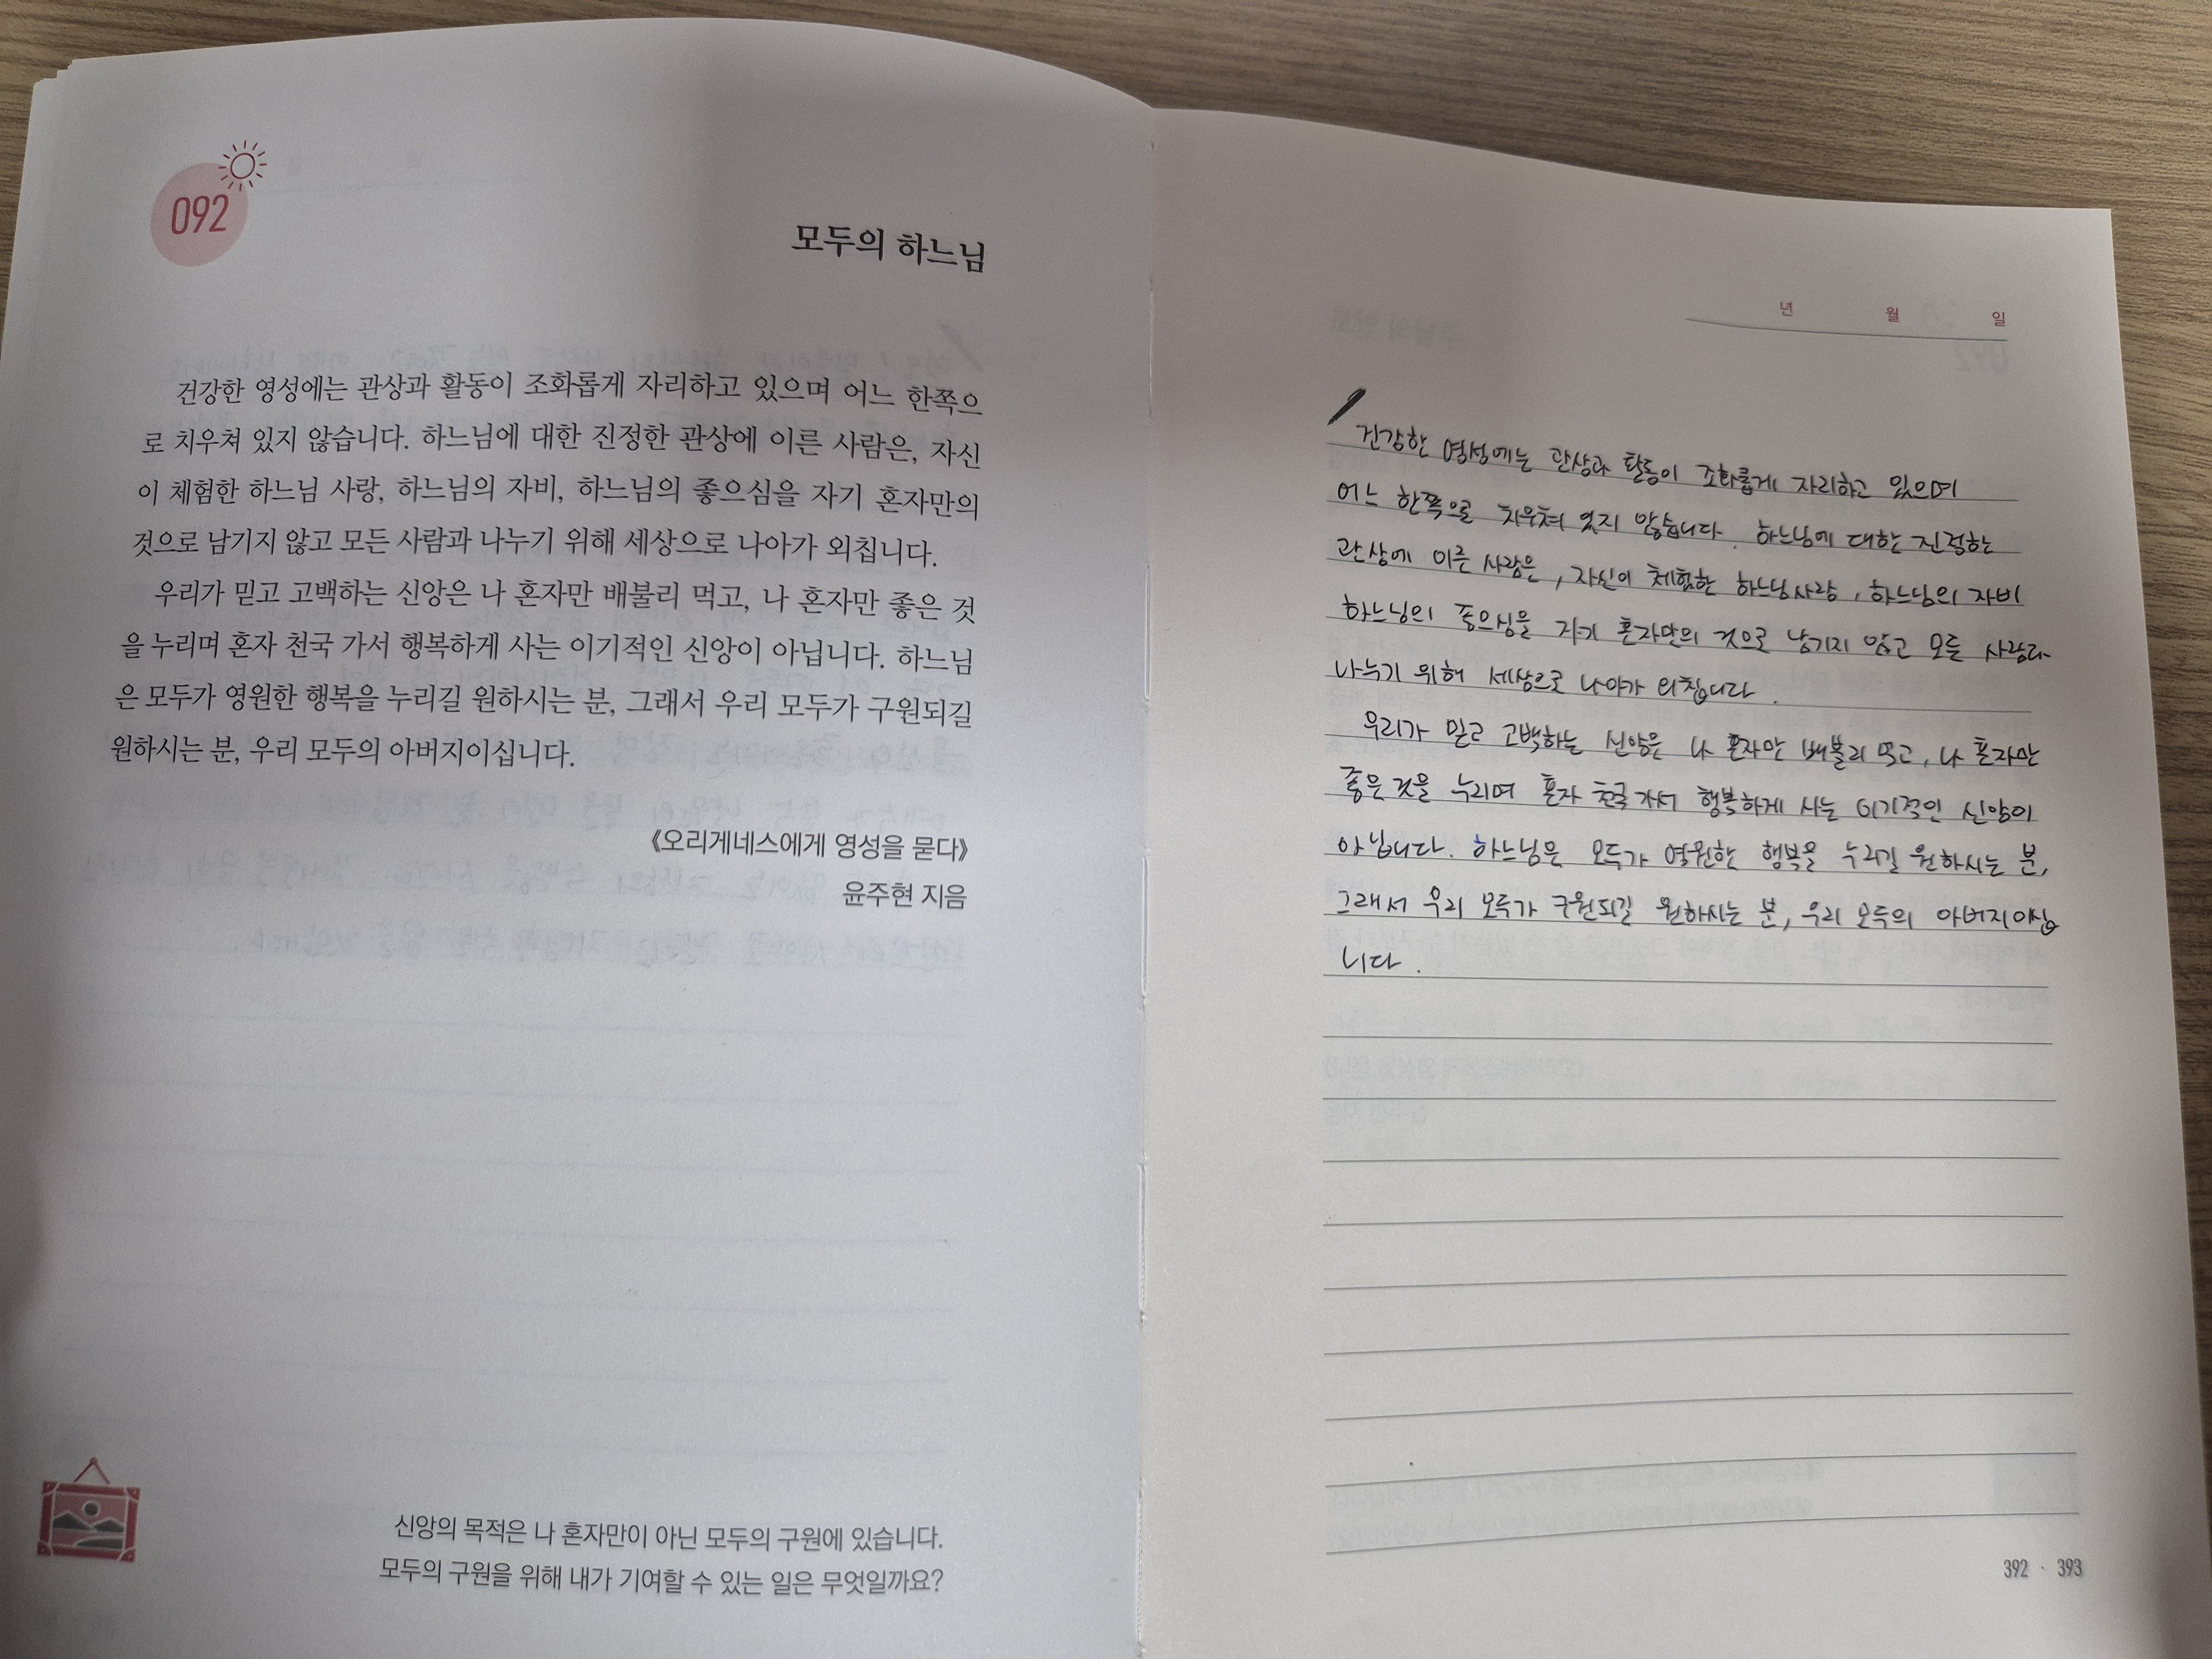 092
모두의 하느님
건강한 영성에는 관상과 활동이 조화롭게 자리하고 있으며 어느 한쪽으
로 치우쳐 있지 않습니다. 하느님에 대한 진정한 관상에 이른 사람은, 자신
이 체험한 하느님 사랑, 하느님의 자비, 하느님의 좋으심을 자기 혼자만의
것으로 남기지 않고 모든 사람과 나누기 위해 세상으로 나아가 외칩니다.
우리가 믿고 고백하는 신앙은 나 혼자만 배불리 먹고, 나 혼자만 좋은 것
을 누리며 혼자 천국 가서 행복하게 사는 이기적인 신앙이 아닙니다. 하느님
은 모두가 영원한 행복을 누리길 원하시는 분, 그래서 우리 모두가 구원되길
원하시는 분, 우리 모두의 아버지이십니다.
《오리게네스에게 영성을 묻다》
윤주현 지음
신앙의 목적은 나 혼자만이 아닌 모두의 구원에 있습니다.
모두의 구원을 위해 내가 기여할 수 있는 일은 무엇일까요?
년 월 일
건강한 영성에는 관상과 활동이 조화롭게 자리하고 있으며
어느 한쪽으로 치우쳐 있지 않습니다. 하느님에 대한 진정한
관상에 이른 사람은, 자신이 체험한 하느님사랑, 하느님의 자비
하느님의 좋으심을 자기 혼자만의 것으로 남기지 않고 모든 사람과
나누기 위해 세상으로 나아가 외칩니다.
우리가 믿고 고백하는 신앙은 나 혼자만 배불리 먹고, 나 혼자만
좋은 것을 누리며 혼자 천국 가서 행복하게 사는 이기적인 신앙이
아닙니다. 하느님은 모두가 영원한 행복을 누리길 원하시는 분,
그래서 우리 모두가 구원되길 원하시는 분, 우리 모두의 아버지이십
니다.
392 · 393